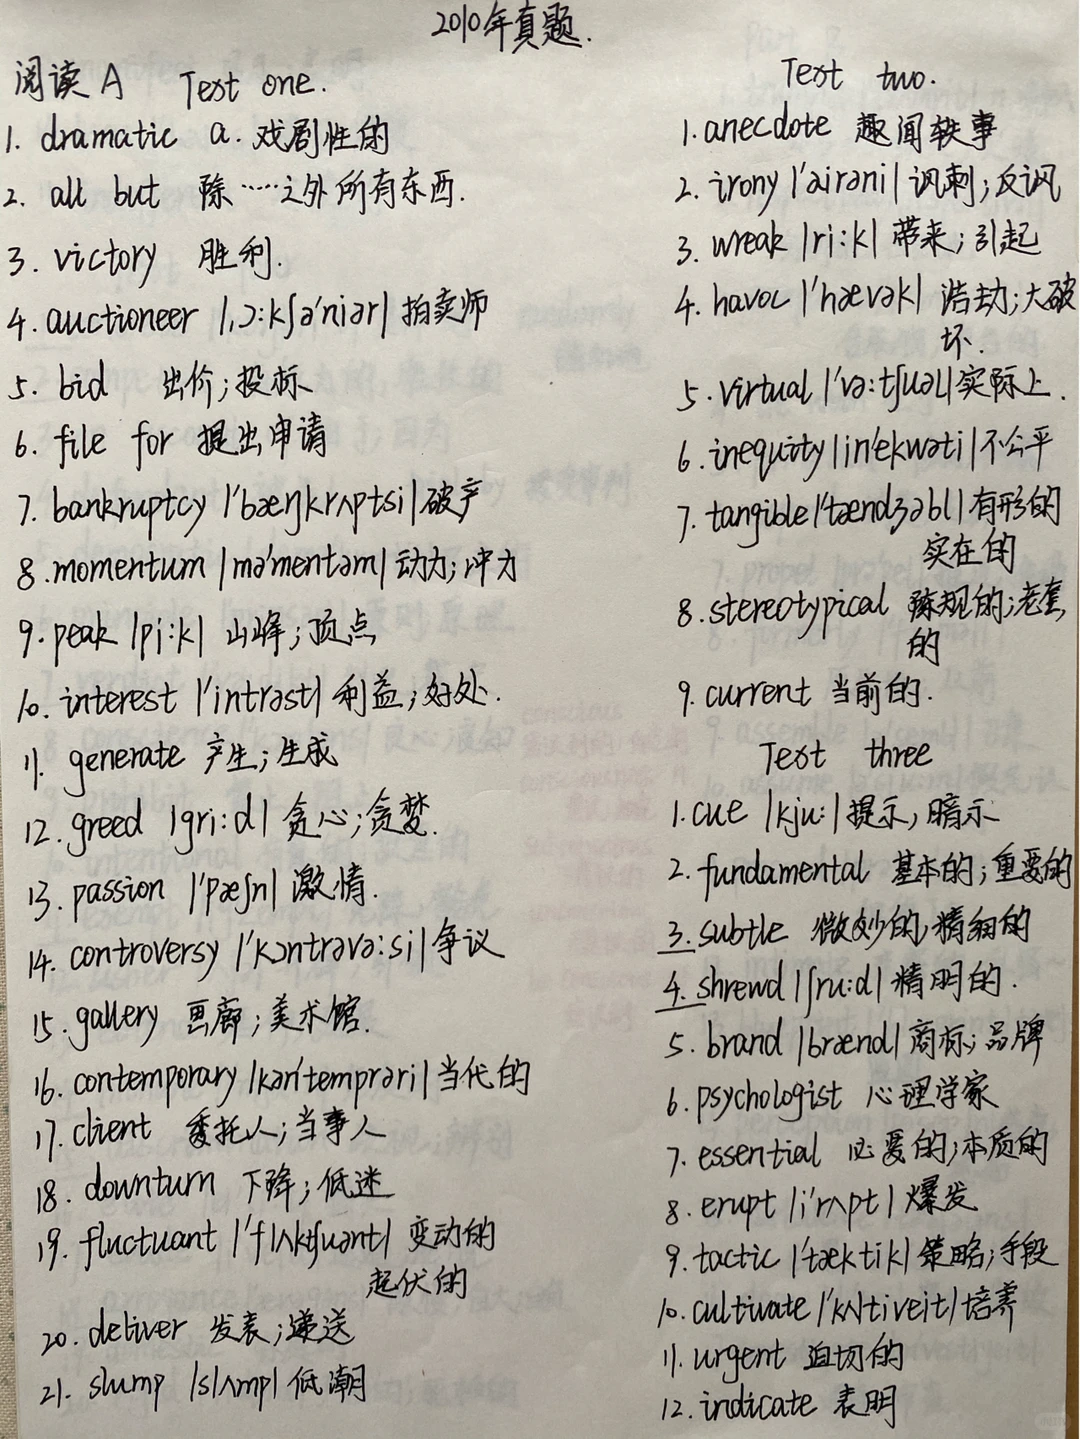 2010年真题.
阅读A Test one.
1. dramatic a. 戏剧性的
2. all but 除……之外所有东西.
3. victory 胜利.
4. auctioneer |,ɔ:kʃə'niər| 拍卖师
5. bid 出价;投标
6. file for 提出申请
7. bankruptcy |'bæŋkrʌptsi| 破产
8. momentum |mə'mentəm| 动力;冲力
9. peak |pi:k| 山峰;顶点
10. interest |'intrəst| 利益;好处.
11. generate 产生;生成
12. greed |gri:d| 贪心;贪婪.
13. passion |'pæʃn| 激情.
14. controversy |'kɔntrəvə:si| 争议
15. gallery 画廊;美术馆.
16. contemporary |kən'temprəri| 当代的
17. client 委托人;当事人
18. downturn 下降;低迷
19. fluctuant |'flʌktʃuənt| 变动的
起伏的
20. deliver 发表;递送
21. slump |slʌmp| 低潮
Test two.
1. anecdote 趣闻轶事
2. irony |'airəni| 讽刺;反讽
3. wreak |ri:k| 带来;引起
4. havoc |'hævək| 浩劫;大破
坏.
5. virtual |'və:tʃuəl| 实际上.
6. inequity |in'ekwəti| 不公平
7. tangible |'tændʒəbl| 有形的
实在的
8. stereotypical 陈规的;老套
的
9. current 当前的.
Test three
1. cue |kju:| 提示,暗示
2. fundamental 基本的;重要的
3. subtle 微妙的;精细的
4. shrewd |ʃru:d| 精明的.
5. brand |brænd| 商标;品牌
6. psychologist 心理学家
7. essential 必要的;本质的
8. erupt |i'rʌpt| 爆发
9. tactic |'tæktik| 策略;手段
10. cultivate |'kʌltiveit| 培养
11. urgent 迫切的
12. indicate 表明